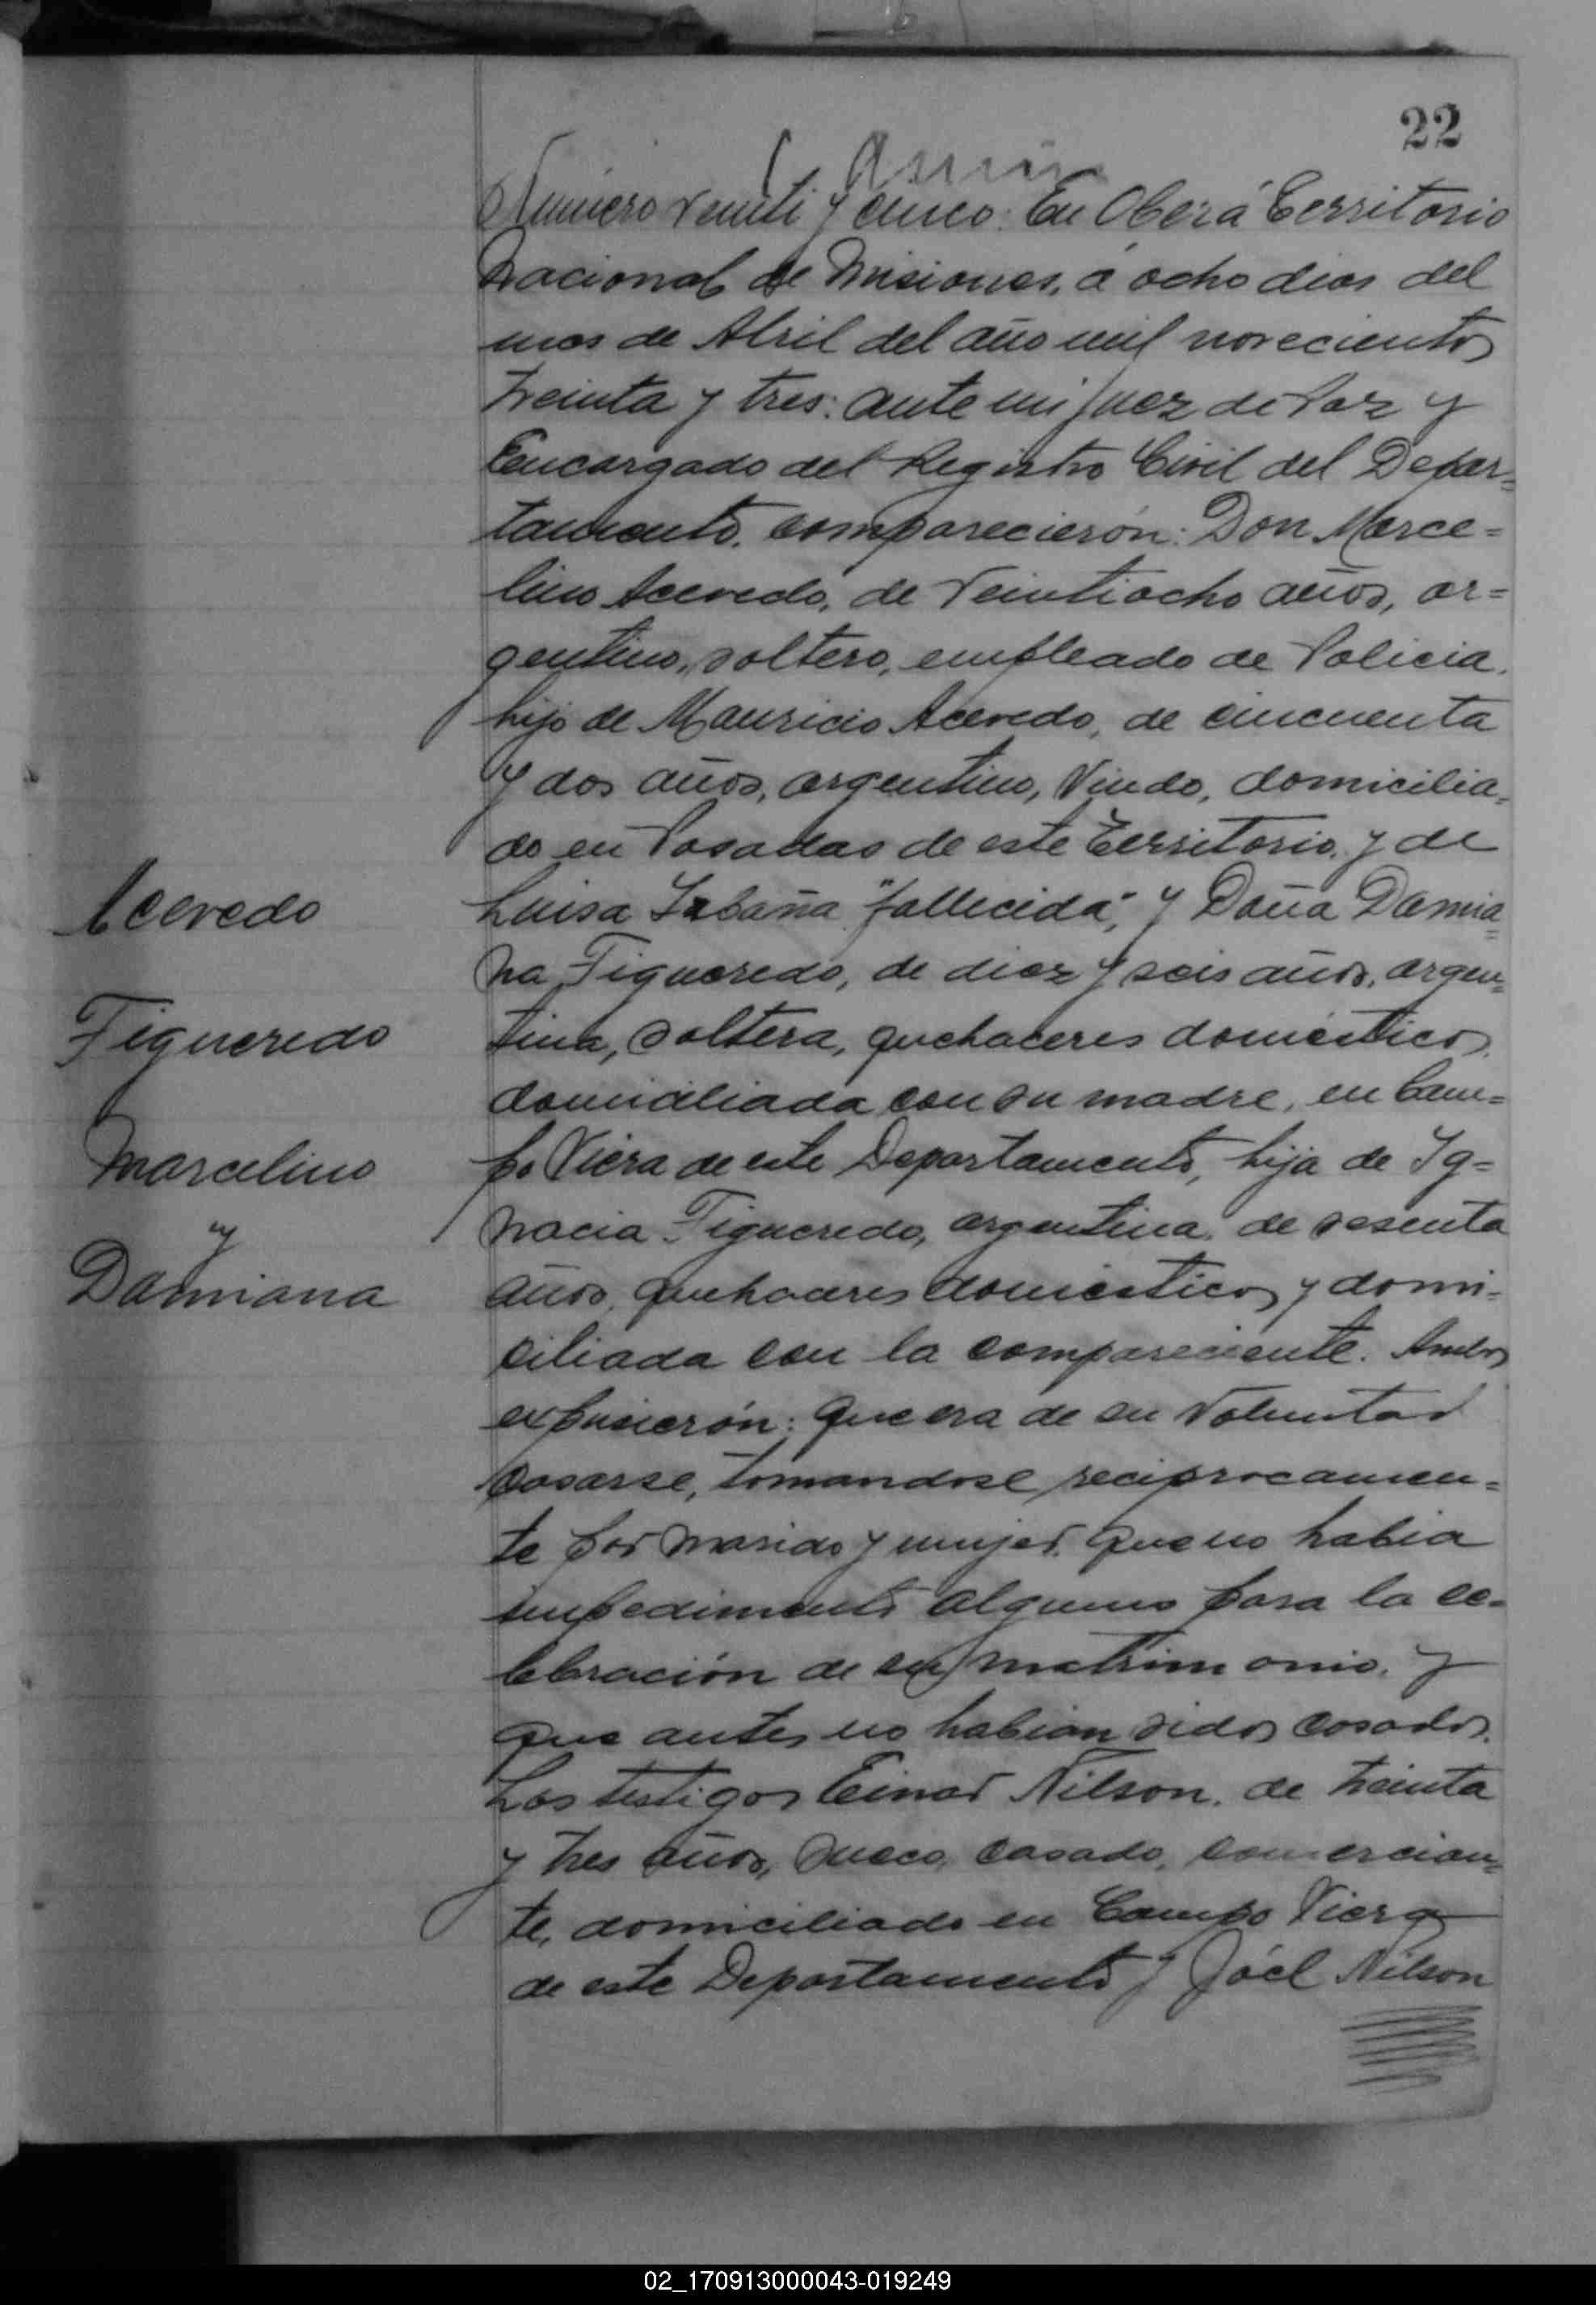 22
Número veinti y cinco: En Oberá Territorio
Nacional de Misiones, á ocho dias del
mes de Abril del año mil novecientos
treinta y tres: ante mi Juez de Paz y
Encargado del Registro Civil del Depar=
tamento. comparecierón: Don Marce=
lino Acevedo, de Veintiocho años, ar=
gentino, soltero, empleado de Policia,
hijo de Mauricio Acevedo, de cincuenta
y dos años, argentino, Viudo, domicilia=
do en Posadas de este Territorio, y de
Luisa "fallecida"; y Doña Damia=
na Figueredo, de diez y seis años, argen=
tina, soltera, quehaceres domésticos,
domiciliada con su madre, en Cam=
po Viera de este Departamento, hija de Ig=
nacia Figueredo, argentina, de sesenta
años, quehaceres domésticos y domi=
ciliada con la compareciente. Ambos
expusierón: Que era de su Voluntad
casarse, tomandose reciprocamen=
te por marido y mujer. Que no habia
impedimento alguno para la ce=
lebración de su matrimonio. y
que antes no habian sidos casados.
Los testigos Einar Nilson, de treinta
y tres años, sueco, casado, comercian=
te, domiciliado en Campo Viera
de este Departamento y Jóel Nilson
Acevedo
Figueredo
Marcelino
y
Damiana
02_170913000043-019249